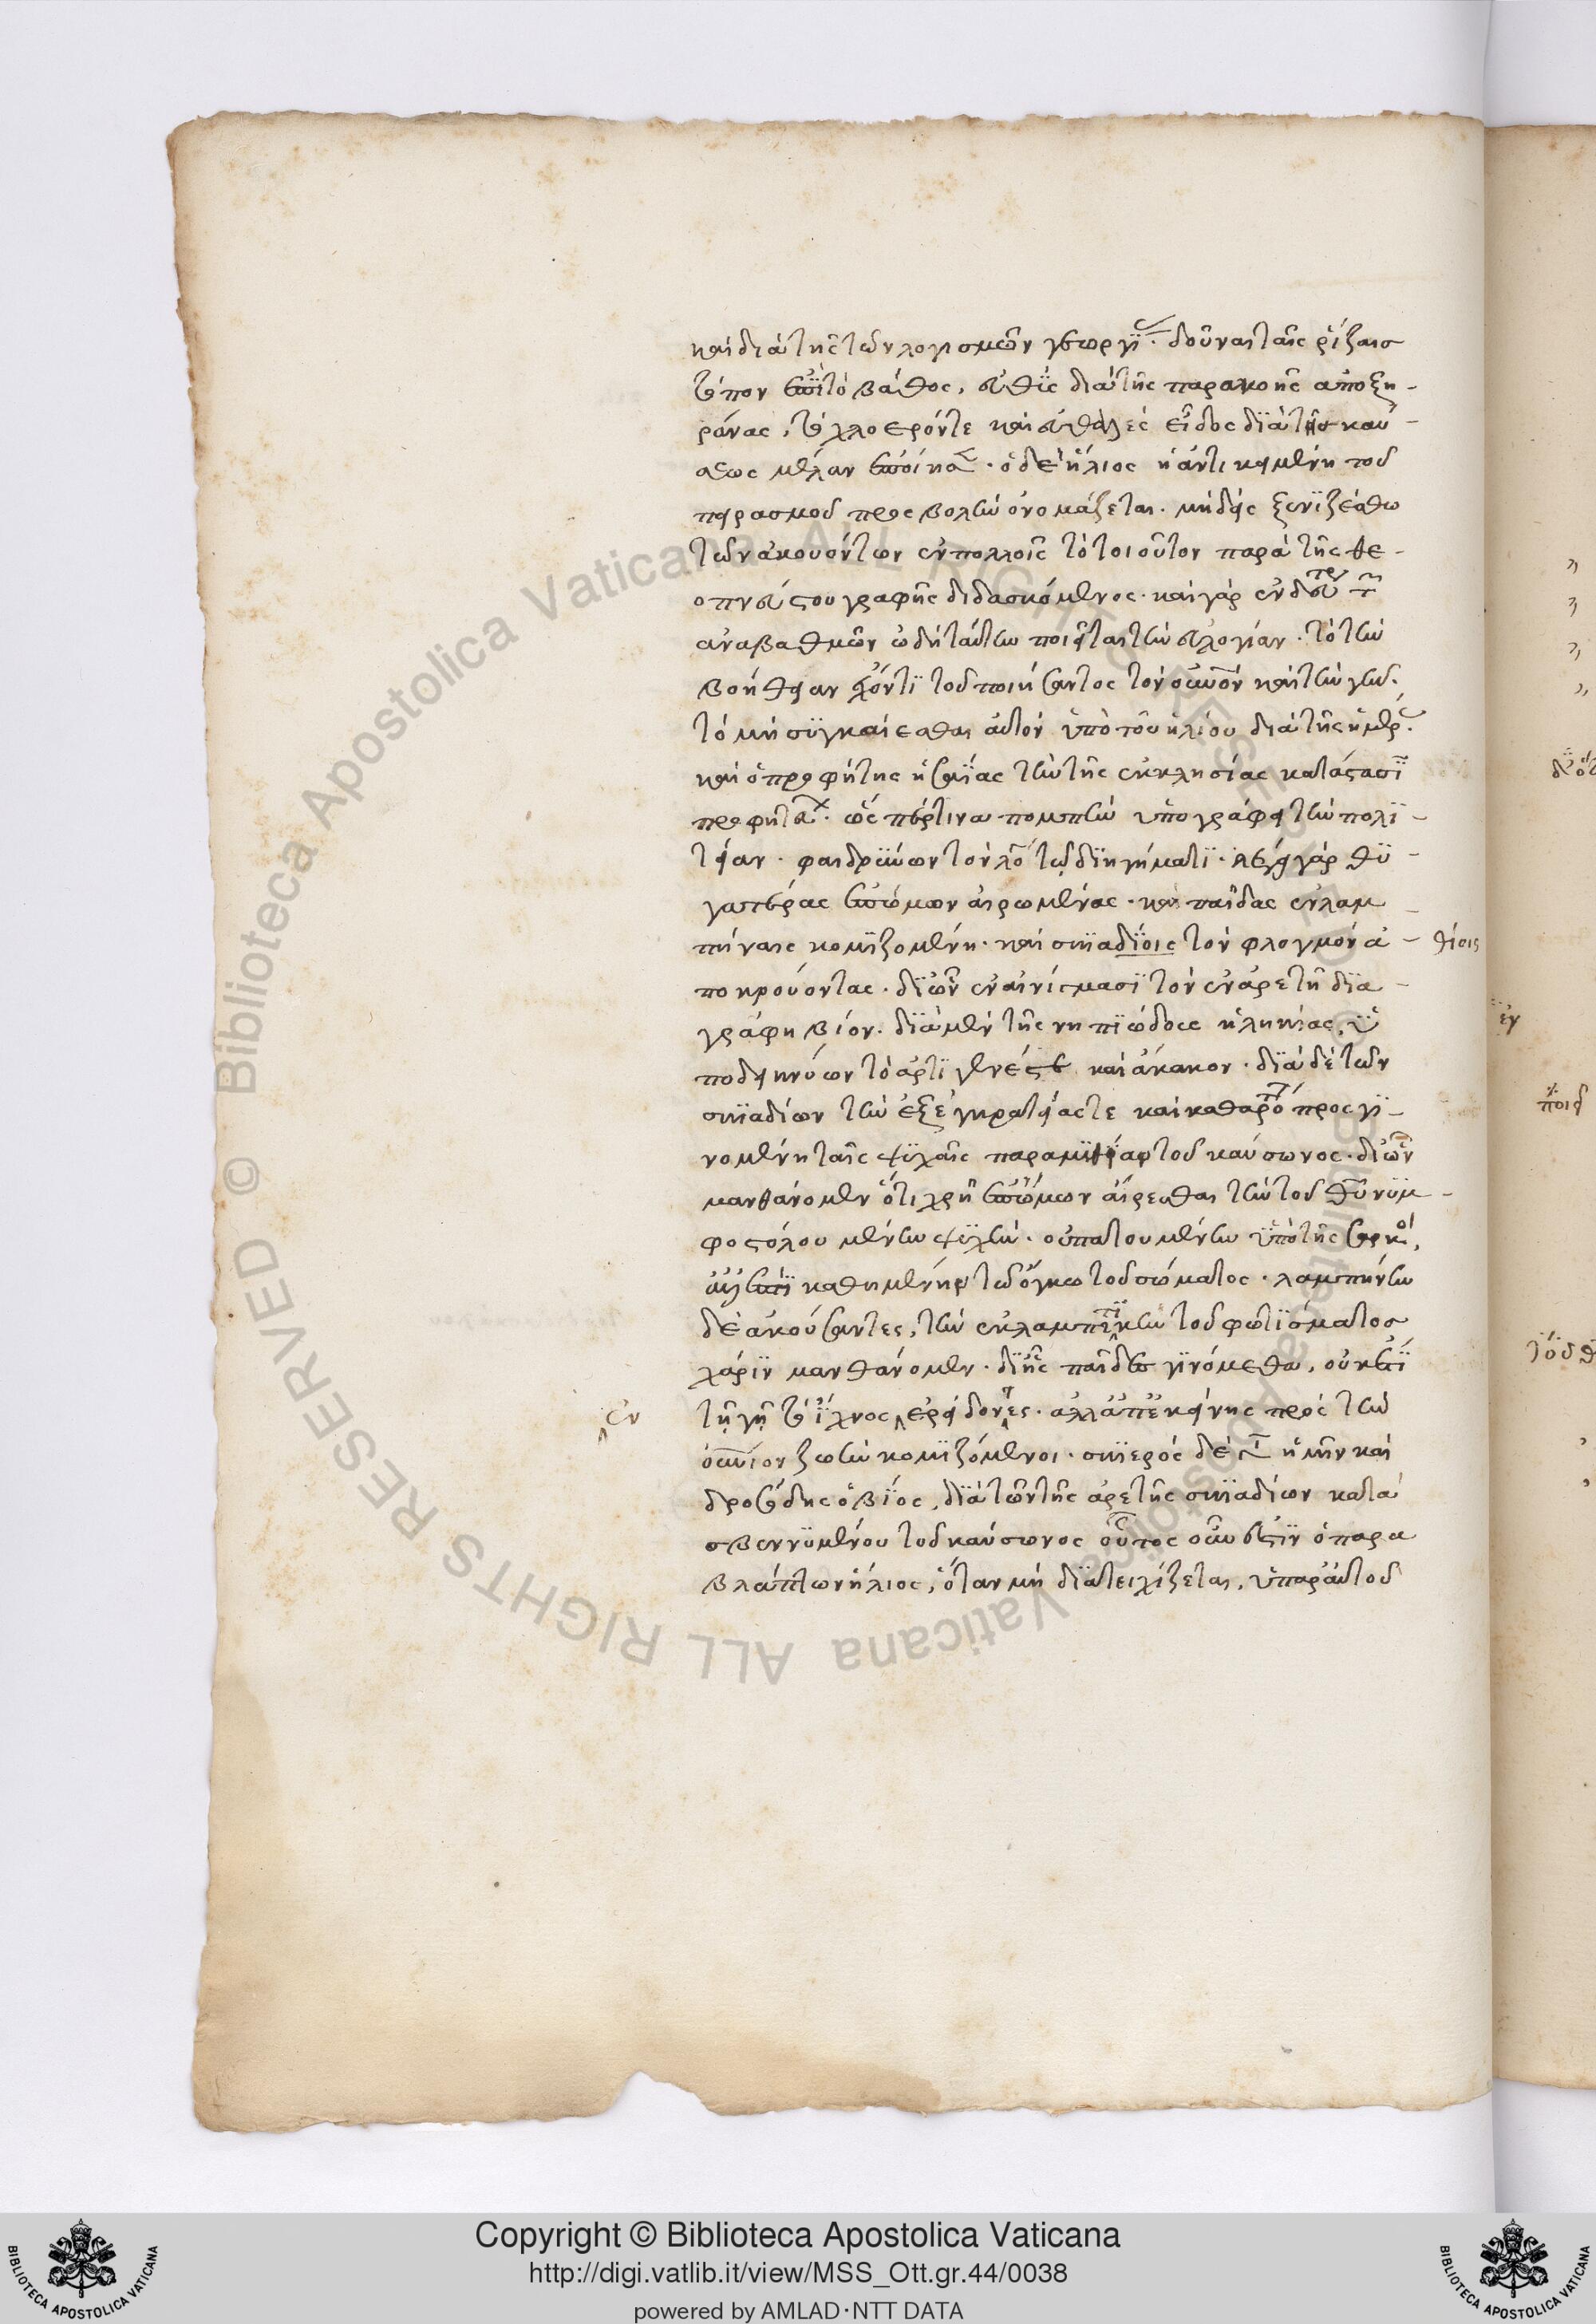 καὶ διὰ τῆς τῶν λογισμῶν γεωργίας. δοῦναι ταῖς ρίζαισ
τόπον ἐπὶ τὸ βάθος, εὐθὺς διὰ τῆς παρακοῆς ἀποξη-
ράνας, τὸ χλοερόν τε καὶ εὐθαλὲς εἶδος διὰ τῆσ καύ-
σεως μέλαν ἐποίησε. ὁ δὲ ἥλιος ἡ ἀντικειμένη τοῦ
πειρασμοῦ προσβολὴ ὀνομάζεται. μηδεὶς ξενιζέσθω
τῶν ἀκουόντων ἐν πολλοῖς τὸ τοιοῦτον παρὰ τῆς θε-
οπνεύστου γραφῆς διδασκόμενος. καὶ γὰρ ἐν δευτέρᾳ τῶν
ἀναβαθμῶν ὠδὴ ταύτην ποιεῖται τὴν εὐλογίαν. τὸ τὴν
βοήθειαν ἔχοντι τοῦ ποιήσαντος τὸν οὐνὸν καὶ τὴν γῆν.
τὸ μὴ συγκαίεσθαι αὐτὸν ὑπὸ τοῦ ἡλίου διὰ τῆς ἡμέρας.
καὶ ὁ προφήτης ἡσαΐας τὴν τῆς ἐκκλησίας κατάστασι
προφητεύων. ὥσπερ τινα πομπὴν ὑπογράφει τὴν πολι-
τείαν. φαιδρύνων τὸν λόγον τῷ διηγήματι. λέγει γὰρ θυ-
γατέρας ἐπ' ὤμων αἰρομένας. καὶ παῖδας ἐν λαμ-
πήναις κομιζομένη. καὶ σκιαδίοις τὸν φλογμὸν ἀ- θίσις
ποκρούοντας. δι ὧν ἐν αἰνίγμασι τὸν ἐν ἀρετῇ δια-
γράφη βίον. διὰ μὲν τῆς νηπιώδους ἡλικίας, ὑ
ποδεικνύων τὸ ἀρτιγενές τε καὶ ἄκακον. διὰ δὲ τῶν
σκιαδίων τὴν ἐξ ἐγκρατείας τε καὶ καθαρότητος προσγι-
νομένη ταῖς ψυχαῖς παραμυθίαν τοῦ καύσωνος. δι ὧν
μανθάνομεν ὅτι χρὴ ἐπ' ὤμων αἴρεσθαι τὴν τοῦ θῦ νυμ-
φοστόλου μένην ψυχήν. οὐ πατουμένην ὑπὸ τῆς σαρκὸς,
ἀλλ' ἐπικαθημένην τῷ ὄγκῳ τοῦ σώματος. λαμπήνην
δὲ ἀκούσαντες, τὴν ἐκλαμπτικὴν τοῦ φωτίσματοσ
χάριν μανθάνομεν. δι ἧς παῖδες γινόμεθα, οὐκέτι
ἐν τῇ γῇ τὸ ἴχνος ἐρείδοντες. ἀλλ' ἀπ' ἐκείνης πρὸς τὴν
οὐνιον ζωὴν κομιζόμενοι. σκιερὸς δὲ γίνεται ἡμῖν καὶ
δροσώδης ὁ βίος, διὰ τῶν τῆς ἀρετῆς σκιαδίων κατα
σβεννυμένου τοῦ καύσωνος οὗτος οὖν ἐστὶν ὁ παρα
βλάπτων ἥλιος, ὅταν μὴ διατειχίζεται, ὑπ' αὐτοῦ